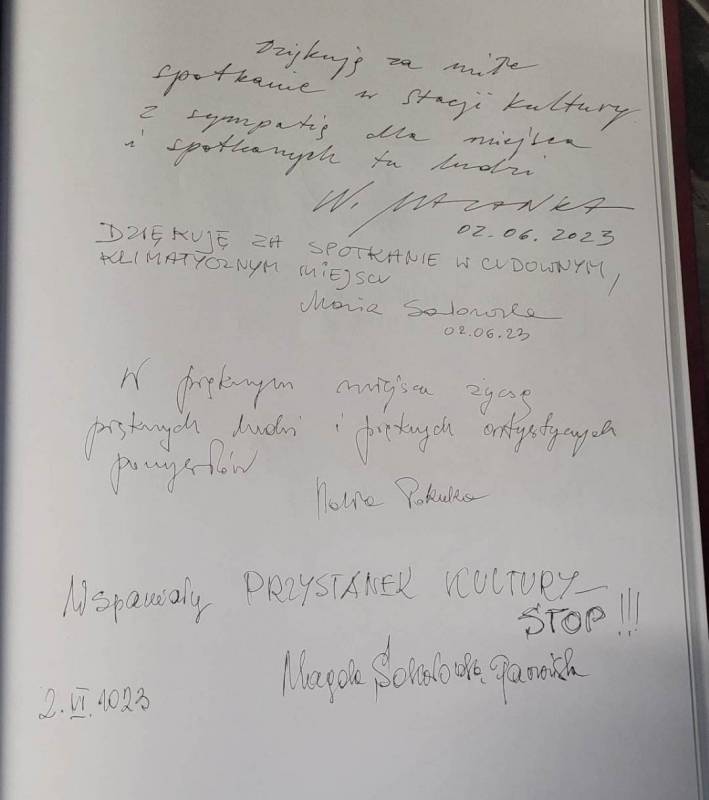 Dziękuję za miłe
spotkanie w Stacji Kultury
z sympatią dla miejsca
i spotkanych tu ludzi
W. 
02.06.2023
DZIĘKUJĘ ZA SPOTKANIE W CUDOWNYM,
KLIMATYCZNYM MIEJSCU
Maria
02.06.23
W pięknym miejscu życzę
pięknych ludzi i pięknych artystycznych
pomysłów
Wspaniały PRZYSTANEK KULTURY –
STOP!!!
Magda Sokołowska
2.VI.2023